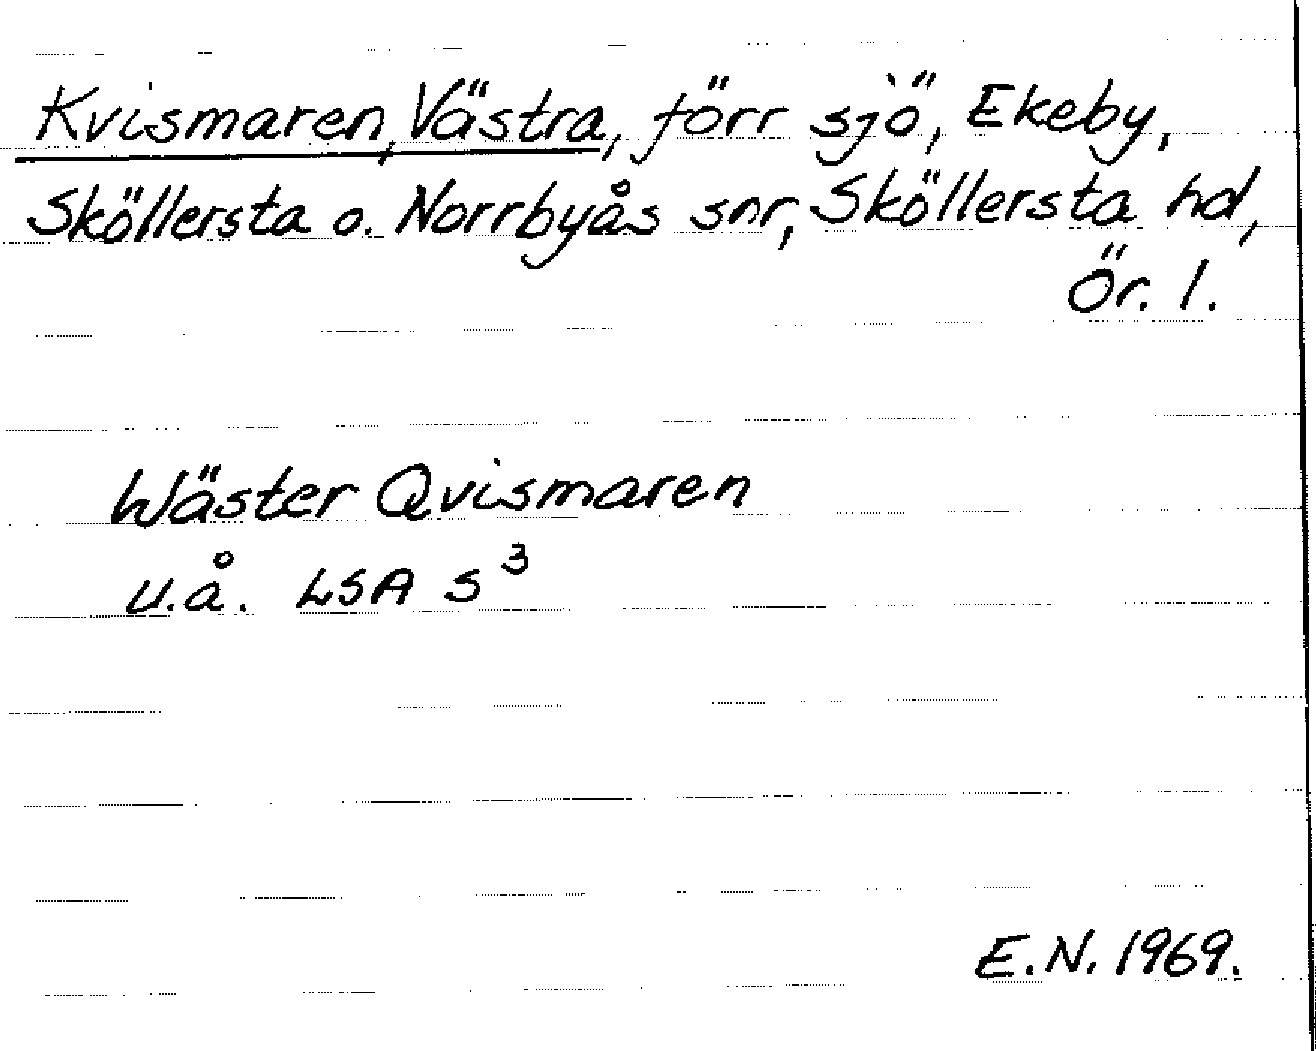 Kvismaren, Västra, förr sjö, Ekeby,
Sköllersta o. Norrbyås snr, Sköllersta hd,
Ör. l.
Wäster Qvismaren
u.å. LSA S³
E.N. 1969.